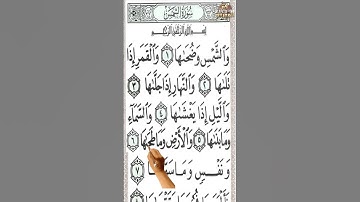 سُورَةُ الشَّمْسِ
بِسْمِ اللَّهِ الرَّحْمَٰنِ الرَّحِيمِ
وَالشَّمْسِ وَضُحَىٰهَا ١ وَالْقَمَرِ إِذَا
تَلَىٰهَا ٢ وَالنَّهَارِ إِذَا جَلَّىٰهَا ٣
وَالَّيْلِ إِذَا يَغْشَىٰهَا ٤ وَالسَّمَآءِ
وَمَا بَنَىٰهَا ٥ وَالْأَرْضِ وَمَا طَحَىٰهَا ٦
وَنَفْسٍ وَمَا ٧